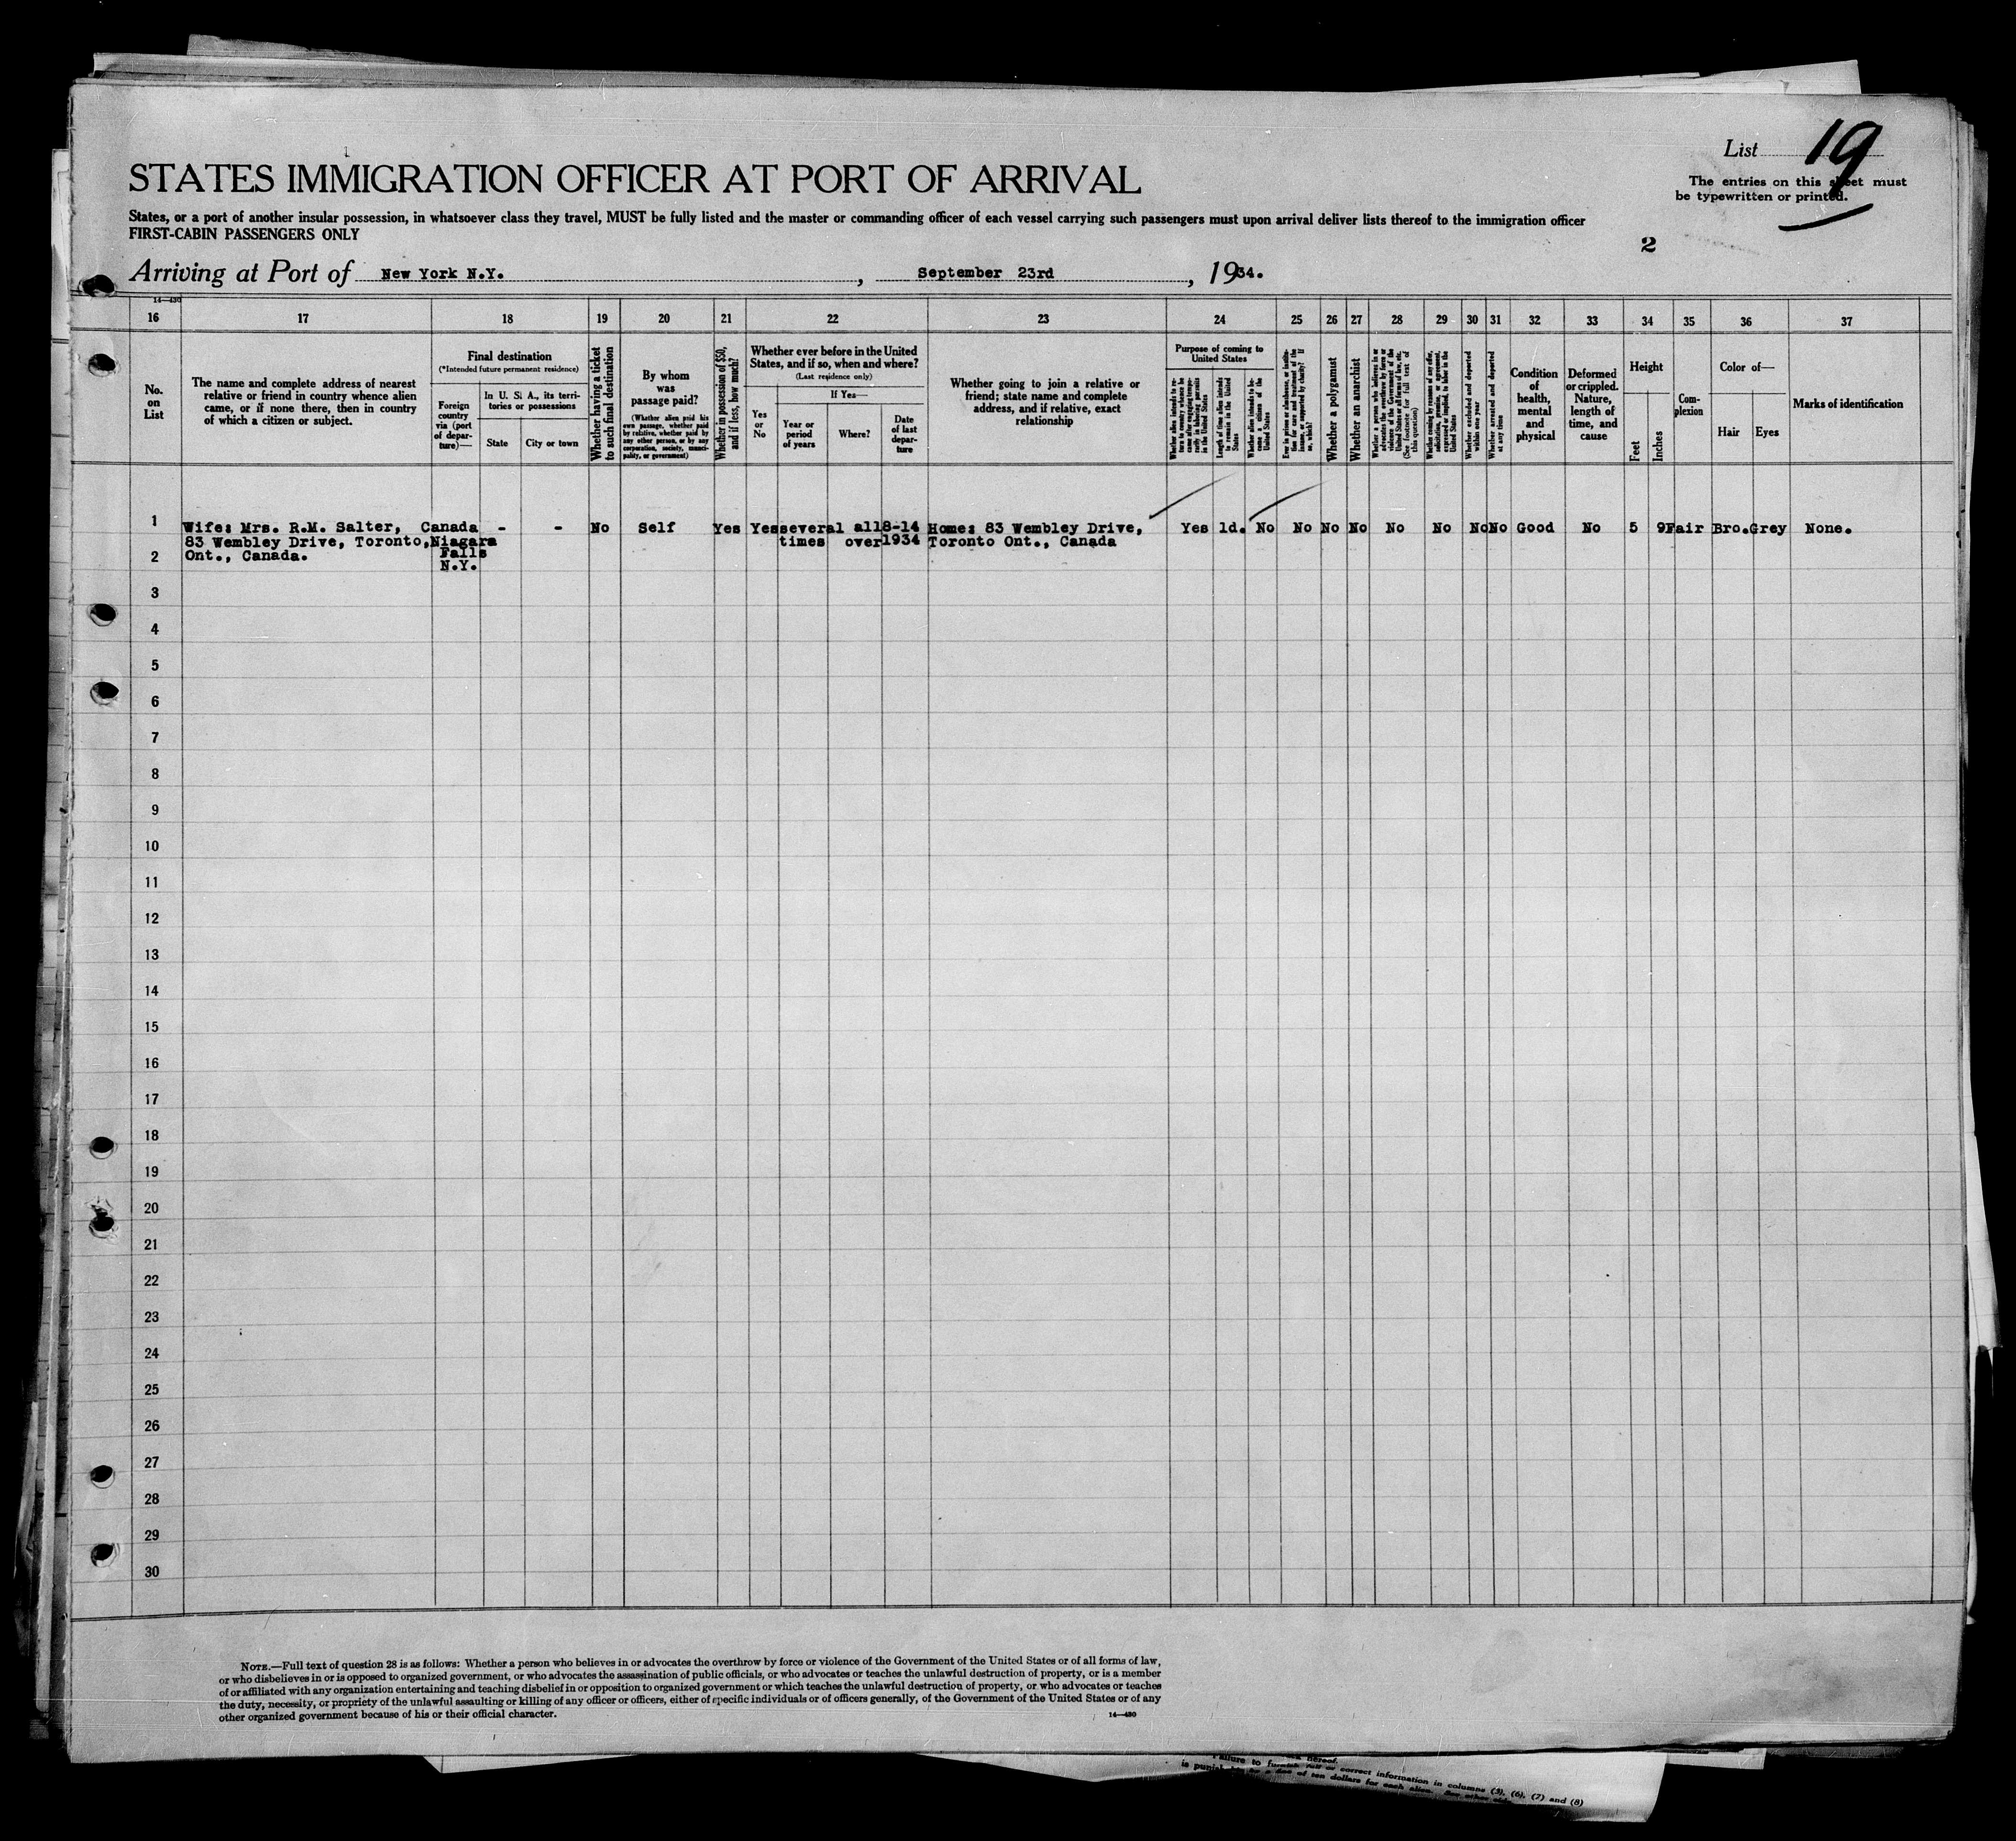 List 19
The entries on this sheet must
be typewritten or printed.
STATES IMMIGRATION OFFICER AT PORT OF ARRIVAL
States, or a port of another insular possession, in whatsoever class they travel, MUST be fully listed and the master or commanding officer of each vessel carrying such passengers must upon arrival deliver lists thereof to the immigration officer
FIRST-CABIN PASSENGERS ONLY
2
Arriving at Port of New York N.Y. , September 23rd , 1934.
14—430
16 17 18 19 20 21 22 23 24 25 26 27 28 29 30 31 32 33 34 35 36 37
No.
on
List
The name and complete address of nearest
relative or friend in country whence alien
came, or if none there, then in country
of which a citizen or subject.
Final destination
(*Intended future permanent residence)
Foreign
country
via (port
of depar-
ture)—
In U. S. A., its terri-
tories or possessions
State
City or town
Whether having a ticket
to such final destination
By whom
was
passage paid?
(Whether alien paid his
own passage, whether paid
by relative, whether paid by
any other person, or by any
corporation, society, munici-
pality, or government)
Whether in possession of $50,
and if less, how much?
Whether ever before in the United
States, and if so, when and where?
(Last residence only)
Yes
or
No
If Yes—
Year or
period
of years
Where?
Date
of last
depar-
ture
Whether going to join a relative or
friend; state name and complete
address, and if relative, exact
relationship
Purpose of coming to
United States
Whether alien intends to re-
turn to country whence he
came after engaging tempo-
rarily in laboring pursuits
in the United States
Length of time alien intends
to remain in the United
States
Whether alien intends to be-
come a citizen of the
United States
Ever in prison or almshouse, or institu-
tion for care and treatment of the
insane, or supported by charity? If
so, which?
Whether a polygamist
Whether an anarchist
Whether a person who believes in or
advocates the overthrow by force or
violence of the Government of the
United States or all forms of law, etc.
(See footnote for full text of
this question)
Whether coming by reason of any offer,
solicitation, promise, or agreement,
expressed or implied, to labor in the
United States
Whether excluded and deported
within one year
Whether arrested and deported
at any time
Condition
of
health,
mental
and
physical
Deformed
or crippled.
Nature,
length of
time, and
cause
Height
Feet
Inches
Com-
plexion
Color of—
Hair
Eyes
Marks of identification
1 Wife: Mrs. R.M. Salter, Canada - - No Self Yes Yes several all 8-14 Home: 83 Wembley Drive, Yes 1d. No No No No No No No No Good No 5 9 Fair Bro. Grey None.
83 Wembley Drive, Toronto, Niagara times over 1934 Toronto Ont., Canada
2 Ont., Canada. Falls
N.Y.
3
4
5
6
7
8
9
10
11
12
13
14
15
16
17
18
19
20
21
22
23
24
25
26
27
28
29
30
NOTE.—Full text of question 28 is as follows: Whether a person who believes in or advocates the overthrow by force or violence of the Government of the United States or of all forms of law,
or who disbelieves in or is opposed to organized government, or who advocates the assassination of public officials, or who advocates or teaches the unlawful destruction of property, or is a member
of or affiliated with any organization entertaining and teaching disbelief in or opposition to organized government or which teaches the unlawful destruction of property, or who advocates or teaches
the duty, necessity, or propriety of the unlawful assaulting or killing of any officer or officers, either of specific individuals or of officers generally, of the Government of the United States or of any
other organized government because of his or their official character.
14—430
hereof.
Failure to furnish full or correct information in columns (3), (6), (7) and (8)
is by a fine of ten dollars for each alien.